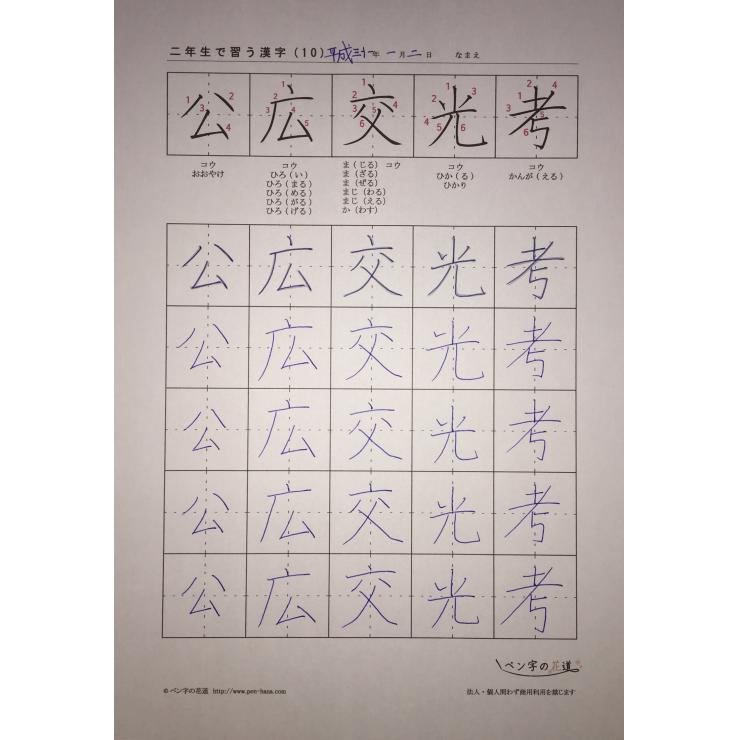 二年生で習う漢字(10) 平成三十一年 一月二日 なまえ
公 広 交 光 考
1 2 3 4 1 2 3 4 5 1 2 3 4 5 6 1 2 3 4 5 6 1 2 3 4 5 6
コウ コウ ま(じる) コウ コウ コウ
おおやけ ひろ(い) ま(ざる) ひか(る) かんが(える)
ひろ(まる) ま(ぜる) ひかり
ひろ(める) まじ(わる)
ひろ(がる) まじ(える)
ひろ(げる) か(わす)
公 広 交 光 考
公 広 交 光 考
公 広 交 光 考
公 広 交 光 考
公 広 交 光 考
ペン字の花道
© ペン字の花道 http://www.pen-hana.com 法人・個人問わず商用利用を禁じます